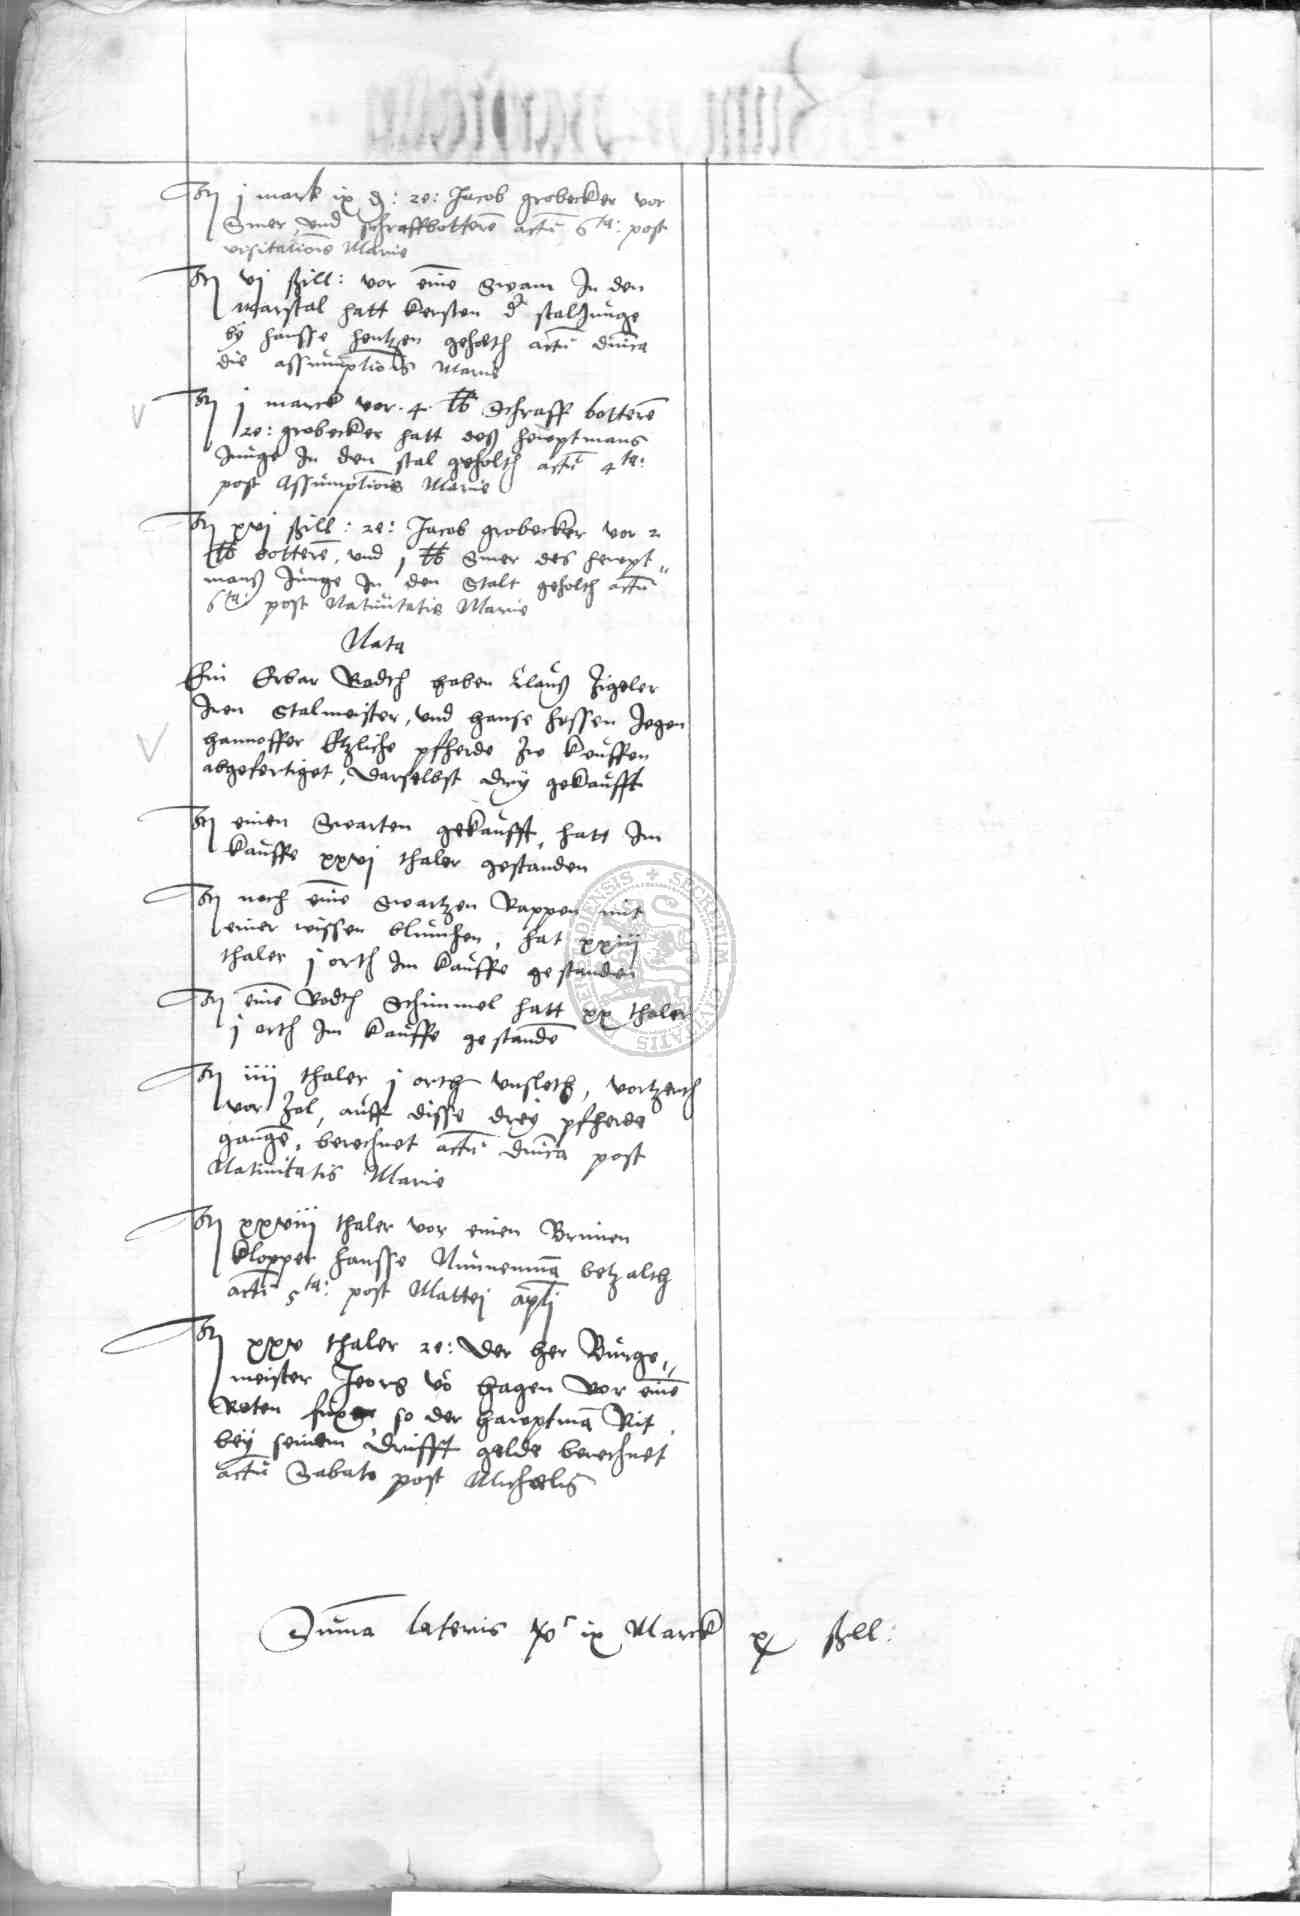 Itm j mark ix d: re: Jacob grobecker vor
Smer, und schaffbotterē actū 6ta: post
visitatiōis Marie
Itm vj ßill: vor eīne Swam In den
marstal hatt kersten d' stalJunge
by hansse hentzen geholth actū dm̄ca
die assumptiōis Marie
Itm j marck vor .4. lb Schaff botterē
re: grobecker hatt deß heuptmans
Junge In den stal geholth actū 4ta:
post Assumptiōis Marie
Itm xvj ßill: re: Jacob grobecker vor 2
lb botterē, und j lb Smer des heupt„
manß Junge In den Stalt geholth actū
6ta: post Natiuitatis Marie
Nota
Ein Erbar Radth haben Clauß Zigeler
Iren Stalmeister, und hanse hessen Jegen
hannoffer Etzliche pfherde zw keuffen
abgefertiget, darselbst drÿ gekaufft
Itm einen Swarten gekaufft, hatt Im
kauffe xxvj thaler gestanden
Itm noch eīne Swartzen Rappen mit
einer wissen blumchen, hat xxiij
thaler j orth Im kauffe gestanden
Itm eīne Rodth Schimmel hatt xx thaler
j orth Im kauffe gestandē
Itm iiij thaler j orth unsloth, vortzerth
vor Zol, auff disse dreÿ pfherde
gangē, berechnet actū dm̄ca post
Natiuitatis Marie
Itm xxviij thaler vor einen Brunen
klopper hansse Nunnemā betzalth
actū 5ta: post Mattej apl̄j
Itm xxv thaler re: der her Burge„
meister Jeorg vō hagen vor eīne
Roten fuxe so der hauptmā Rit
beÿ seinem drifft gelde berechnet
actū Sabato post Michaelis
Sum̄a lateris ix Marck x ßill:
SECRETUM CIVITATIS